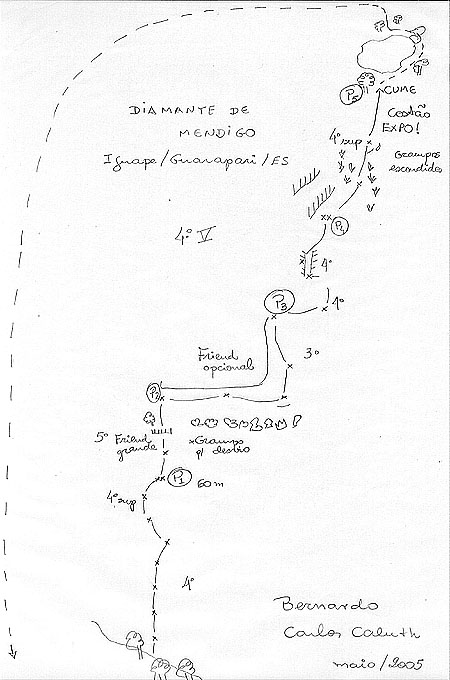 P5
CUME
Costão
EXPO!
DIAMANTE DE
MENDIGO
Iguape/Guarapari/ES
4º sup
Grampos
escondidos
P4
4º V
4º
P3
1º
Friend
opcional
3º
P2
5º Friend
grande
xGrampo
p/ desvio
P1 60m
4º sup
4º
Bernardo
Carlos Caluth
maio/2005